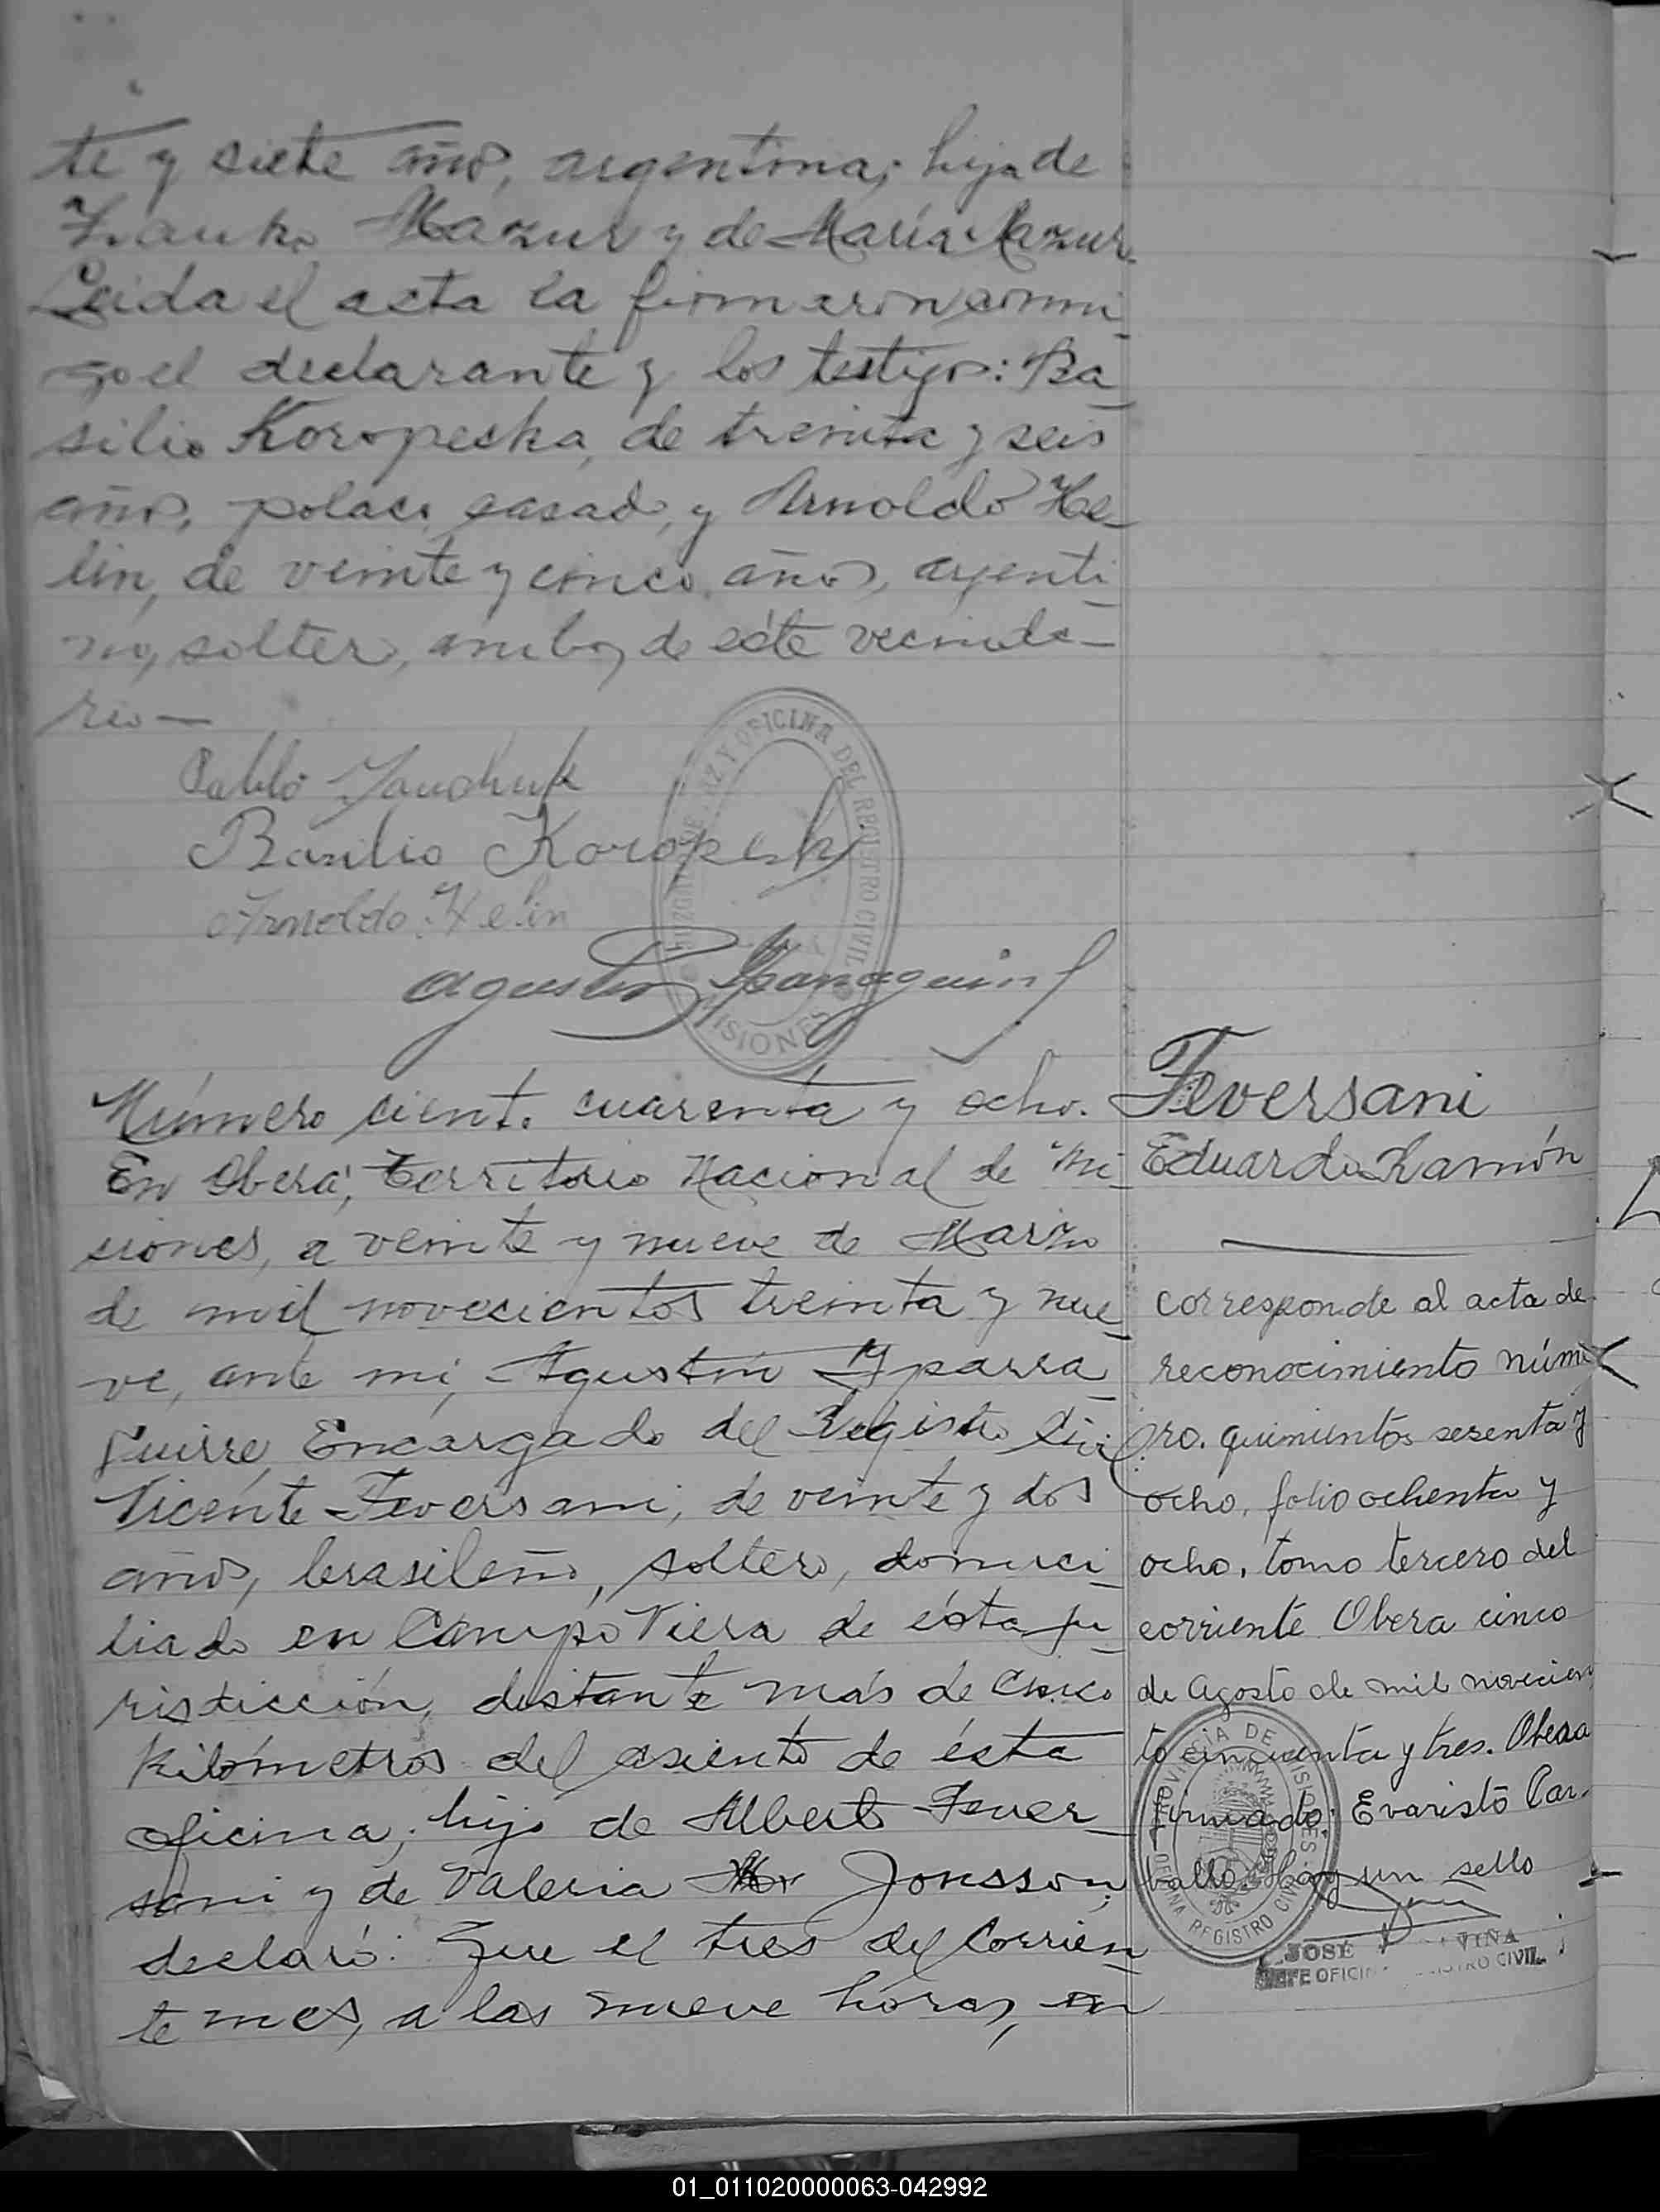 te y siete años, argentina; hija de
Mazur y de María Mazur.
Leida el acta la firmaron conmi_
go el declarante y los testigos: Ba_
silio Koropeska, de treinta y seis
años, polaco, casado, y Arnoldo He_
lin, de veinte y cinco años, argenti_
no, soltero, ambos de éste vecinda_
rio —
Pablo
Basilio Koropesk
Arnoldo Helin
JUZGADO DE PAZ Y OFICINA DEL REGISTRO CIVIL
MISIONES
Agustin
Número ciento cuarenta y ocho.
En Oberá, Territorio Nacional de Mi_
siones, a veinte y nueve de Marzo
de mil novecientos treinta y nue_
ve, ante mi, Agustín Yparra_
guirre, Encargado del Registro Civil
Vicente Feversani, de veinte y dos
años, brasileño, soltero, domici_
liado en Campo Viera de ésta ju_
risdicción, distante más de cinco
kilómetros del asiento de ésta
oficina; hijo de Alberto Fever_
sani y de Valeria Jonsson;
declaró: Que el tres del corrien_
te mes, a las nueve horas, en
Feversani
Eduardo Ramón
corresponde al acta de
reconocimiento núme
ro. quinientos sesenta y
ocho, folio ochenta y
ocho, tomo tercero del
corriente Obera cinco
de Agosto de mil novecien
to cincuenta y tres. Obera
firmado: Evaristo Car.
ballo. Hay un sello
PROVINCIA DE MISIONES
OFICINA REGISTRO CIVIL
JOSÉ VIÑA
JEFE OFICINA REGISTRO CIVIL
01_011020000063-042992